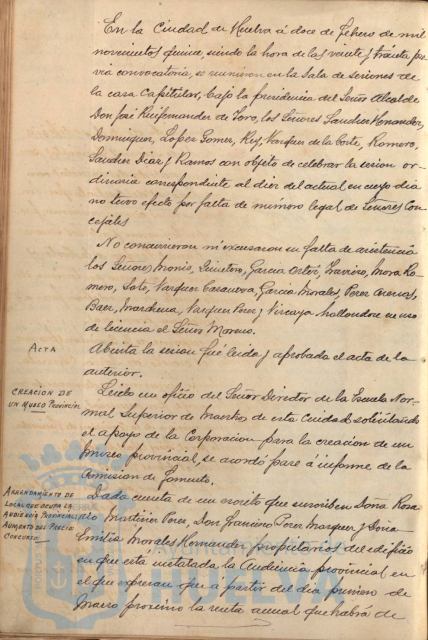 En la Ciudad de Huelva á doce de Febrero de mil
novecientos quince, siendo la hora de las veinte y treinta pre-
via convocatoria, se reunieron en la Sala de sesiones de
la casa Capitular, bajo la presidencia del Señor Alcalde
Don José Ruifernandez de Toro, los Señores Sanchez Hernandez,
Dominguez, Lopez Gomez, Rey, Vazquez de la Corte, Romero,
Sanchez Diaz y Ramos con objeto de celebrar la sesion or-
dinaria correspondiente al diez del actual en cuyo dia
no tuvo efecto por falta de número legal de Señores Con-
cejales
No concurrieron ni excusaron su falta de asistencia
los Señores Monis, García Mora Ro-
mero, Soto, Vazquez Casanova, García Morales, Perez
Baez, Marchena, Vazquez Perez y Vizcaya hallandose en uso
de licencia el Señor Moreno.
ACTA
Abierta la sesion fué leida y aprobada el acta de la
anterior.
CREACION DE
UN MUSEO PROVINCIAL
Leido un oficio del Señor Director de la Escuela Nor-
mal Superior de Maestros de esta Ciudad solicitando
el apoyo de la Corporacion para la creacion de un
Museo provincial, se acordó pase á informe de la
Comision de Fomento.
ARRENDAMIENTO DE
LOCAL QUE OCUPA LA
AUDIENCIA PROVINCIAL
AUMENTO DEL PRECIO
CONCURSO
Dada cuenta de un escrito que suscriben Doña Rosa-
Martinez Perez, Don Francisco Perez Marquez y Doña
Emilia Morales Hernandez propietarios del edificio
en que está instalada la Audiencia provincial en
el que expresan que á partir del dia primero de
Marzo proximo la renta anual que habrá de
Ayuntamiento de
HUELVA